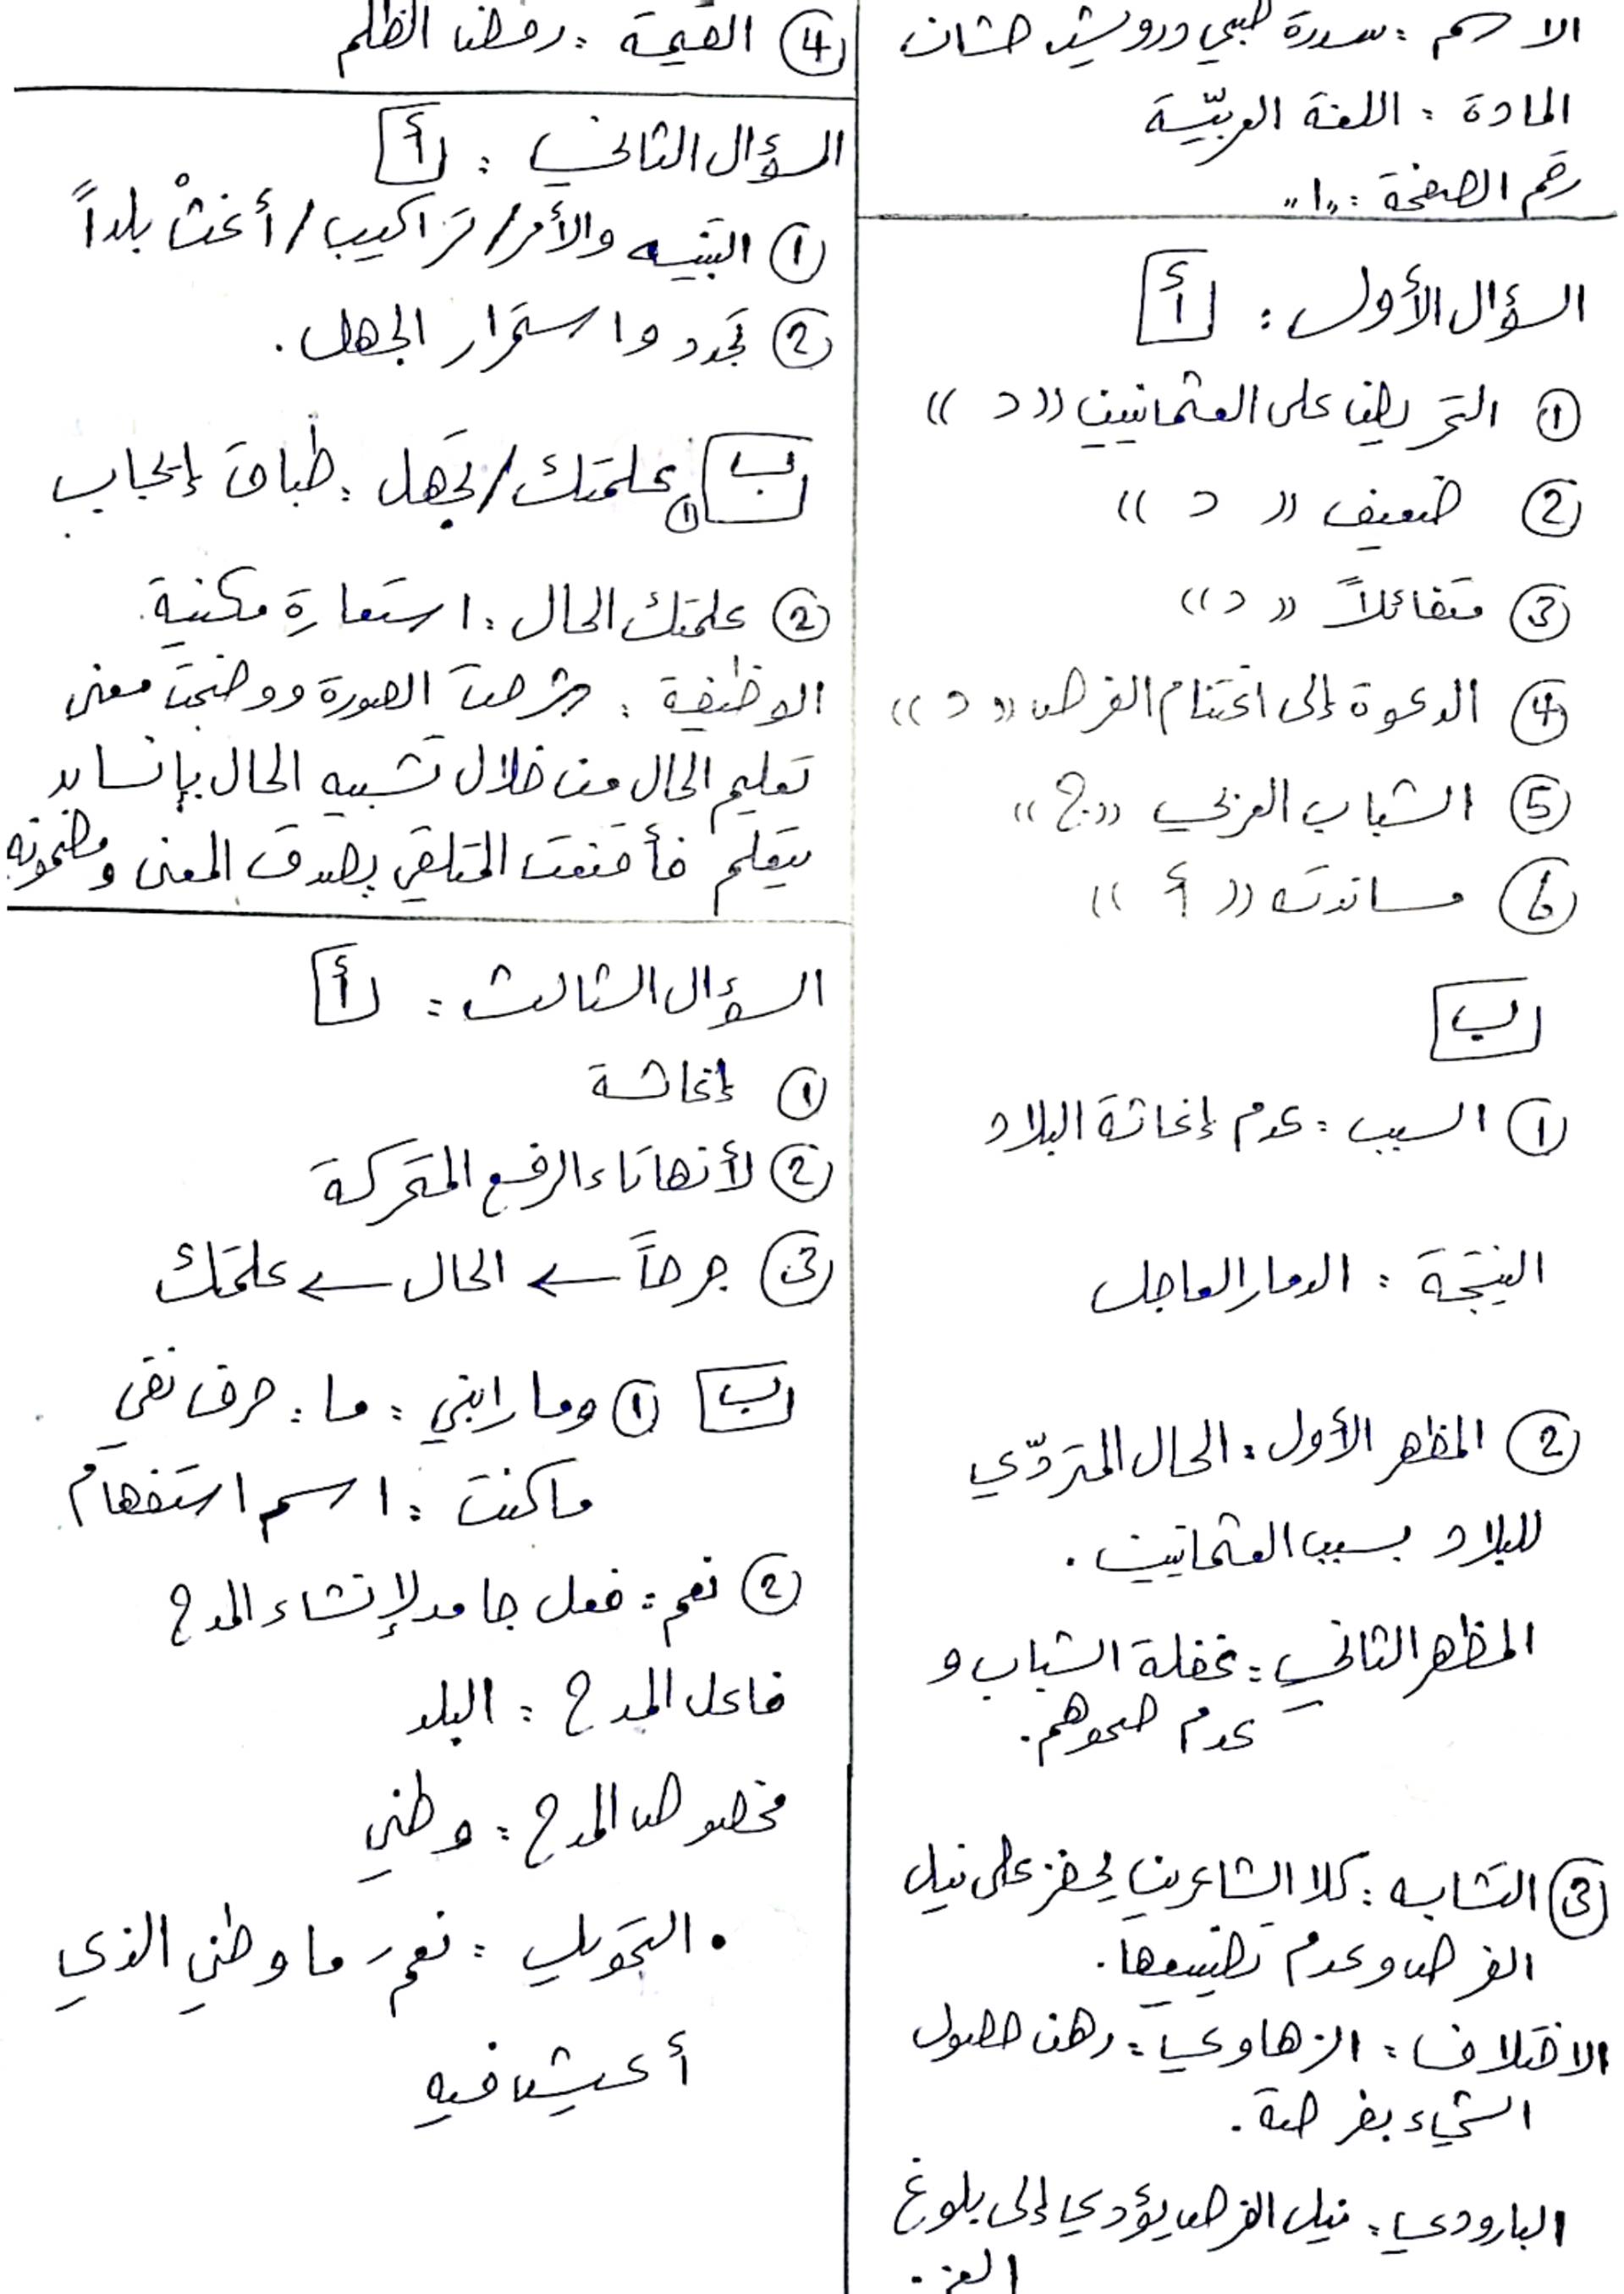 الاسم : سدرة طبجي درويش حشان
المادة : اللغة العربيّة
رقم الصفحة : "١"
السؤال الأول : أ
① التحريض على العثمانيين ((د))
② ضعيف ((د))
③ متفائلاً ((د))
④ الدعوة إلى اغتنام الفرص ((د))
⑤ الشباب العربي ((ج))
⑥ مساندته ((أ))
ب
① السبب : عدم إغاثة البلاد
النتيجة : الدمار العاجل
② المظهر الأول : الحال المتردّي
للبلاد بسبب العثمانيين .
المظهر الثاني : غفلة الشباب و
عدم صحوهم .
③ التشابه : كلا الشاعرين يحفز على نيل
الفرص وعدم تضييعها .
الاختلاف : الزهاوي : رهن حصول
الشيء بفرصة .
البارودي : نيل الفرص يؤدي إلى بلوغ
العز .
④ القيمة : رفض الظلم
السؤال الثاني : أ
① التنبيه والأمر / تراكيب / أغثْ بلداً
② تجدد واستمرار الجهل .
ب ① علمتك / تجهل : طباق إيجاب
② علمتك الحال : استعارة مكنية .
الوظيفة : شرحت الصورة ووضحت معنى
تعليم الحال من خلال تشبيه الحال بإنسان
يتعلم فأقنعت المتلقي بصدق المعنى ومضمونه
السؤال الثالث : أ
① إغاثة
② لأنها تاء الرفع المتحركة
③ جرحاً ← الحال ← علمتك
ب ① وما رابني : ما : حرف نفي
ما كنت : اسم استفهام
② نعم : فعل جامد لإنشاء المدح
فاعل المدح : البلد
مخصوص المدح : وطني
• التحويل : نعم ما وطني الذي
أعيش فيه